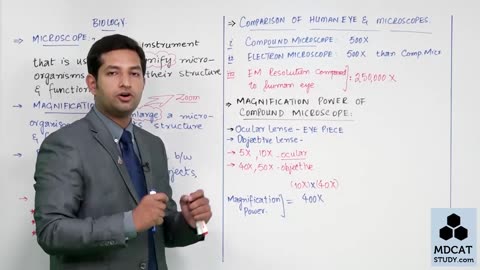 BIOLOGY
→ MICROSCOPE:- Instrument
that is used
micro-
organisms their structure
& function
→ MAGNIFICATION
Zoom
enlarge micro-
organisms structure
& b/w
objects,
→ COMPARISON OF HUMAN EYE & MICROSCOPES.
i COMPOUND MICROSCOPE: 500X
ii ELECTRON MICROSCOPE: 500X than Comp Micr
iii EM Resolution Compared
to human eye = 250,000X
→ MAGNIFICATION POWER OF
COMPOUND MICROSCOPE:-
→ Ocular Lense - EYE PIECE
→ Objective Lense -
→ 5X, 10X - ocular
→ 40X, 50X - objective
(10X)x(40X)
Magnification
Power. = 400X
MDCAT
STUDY.com